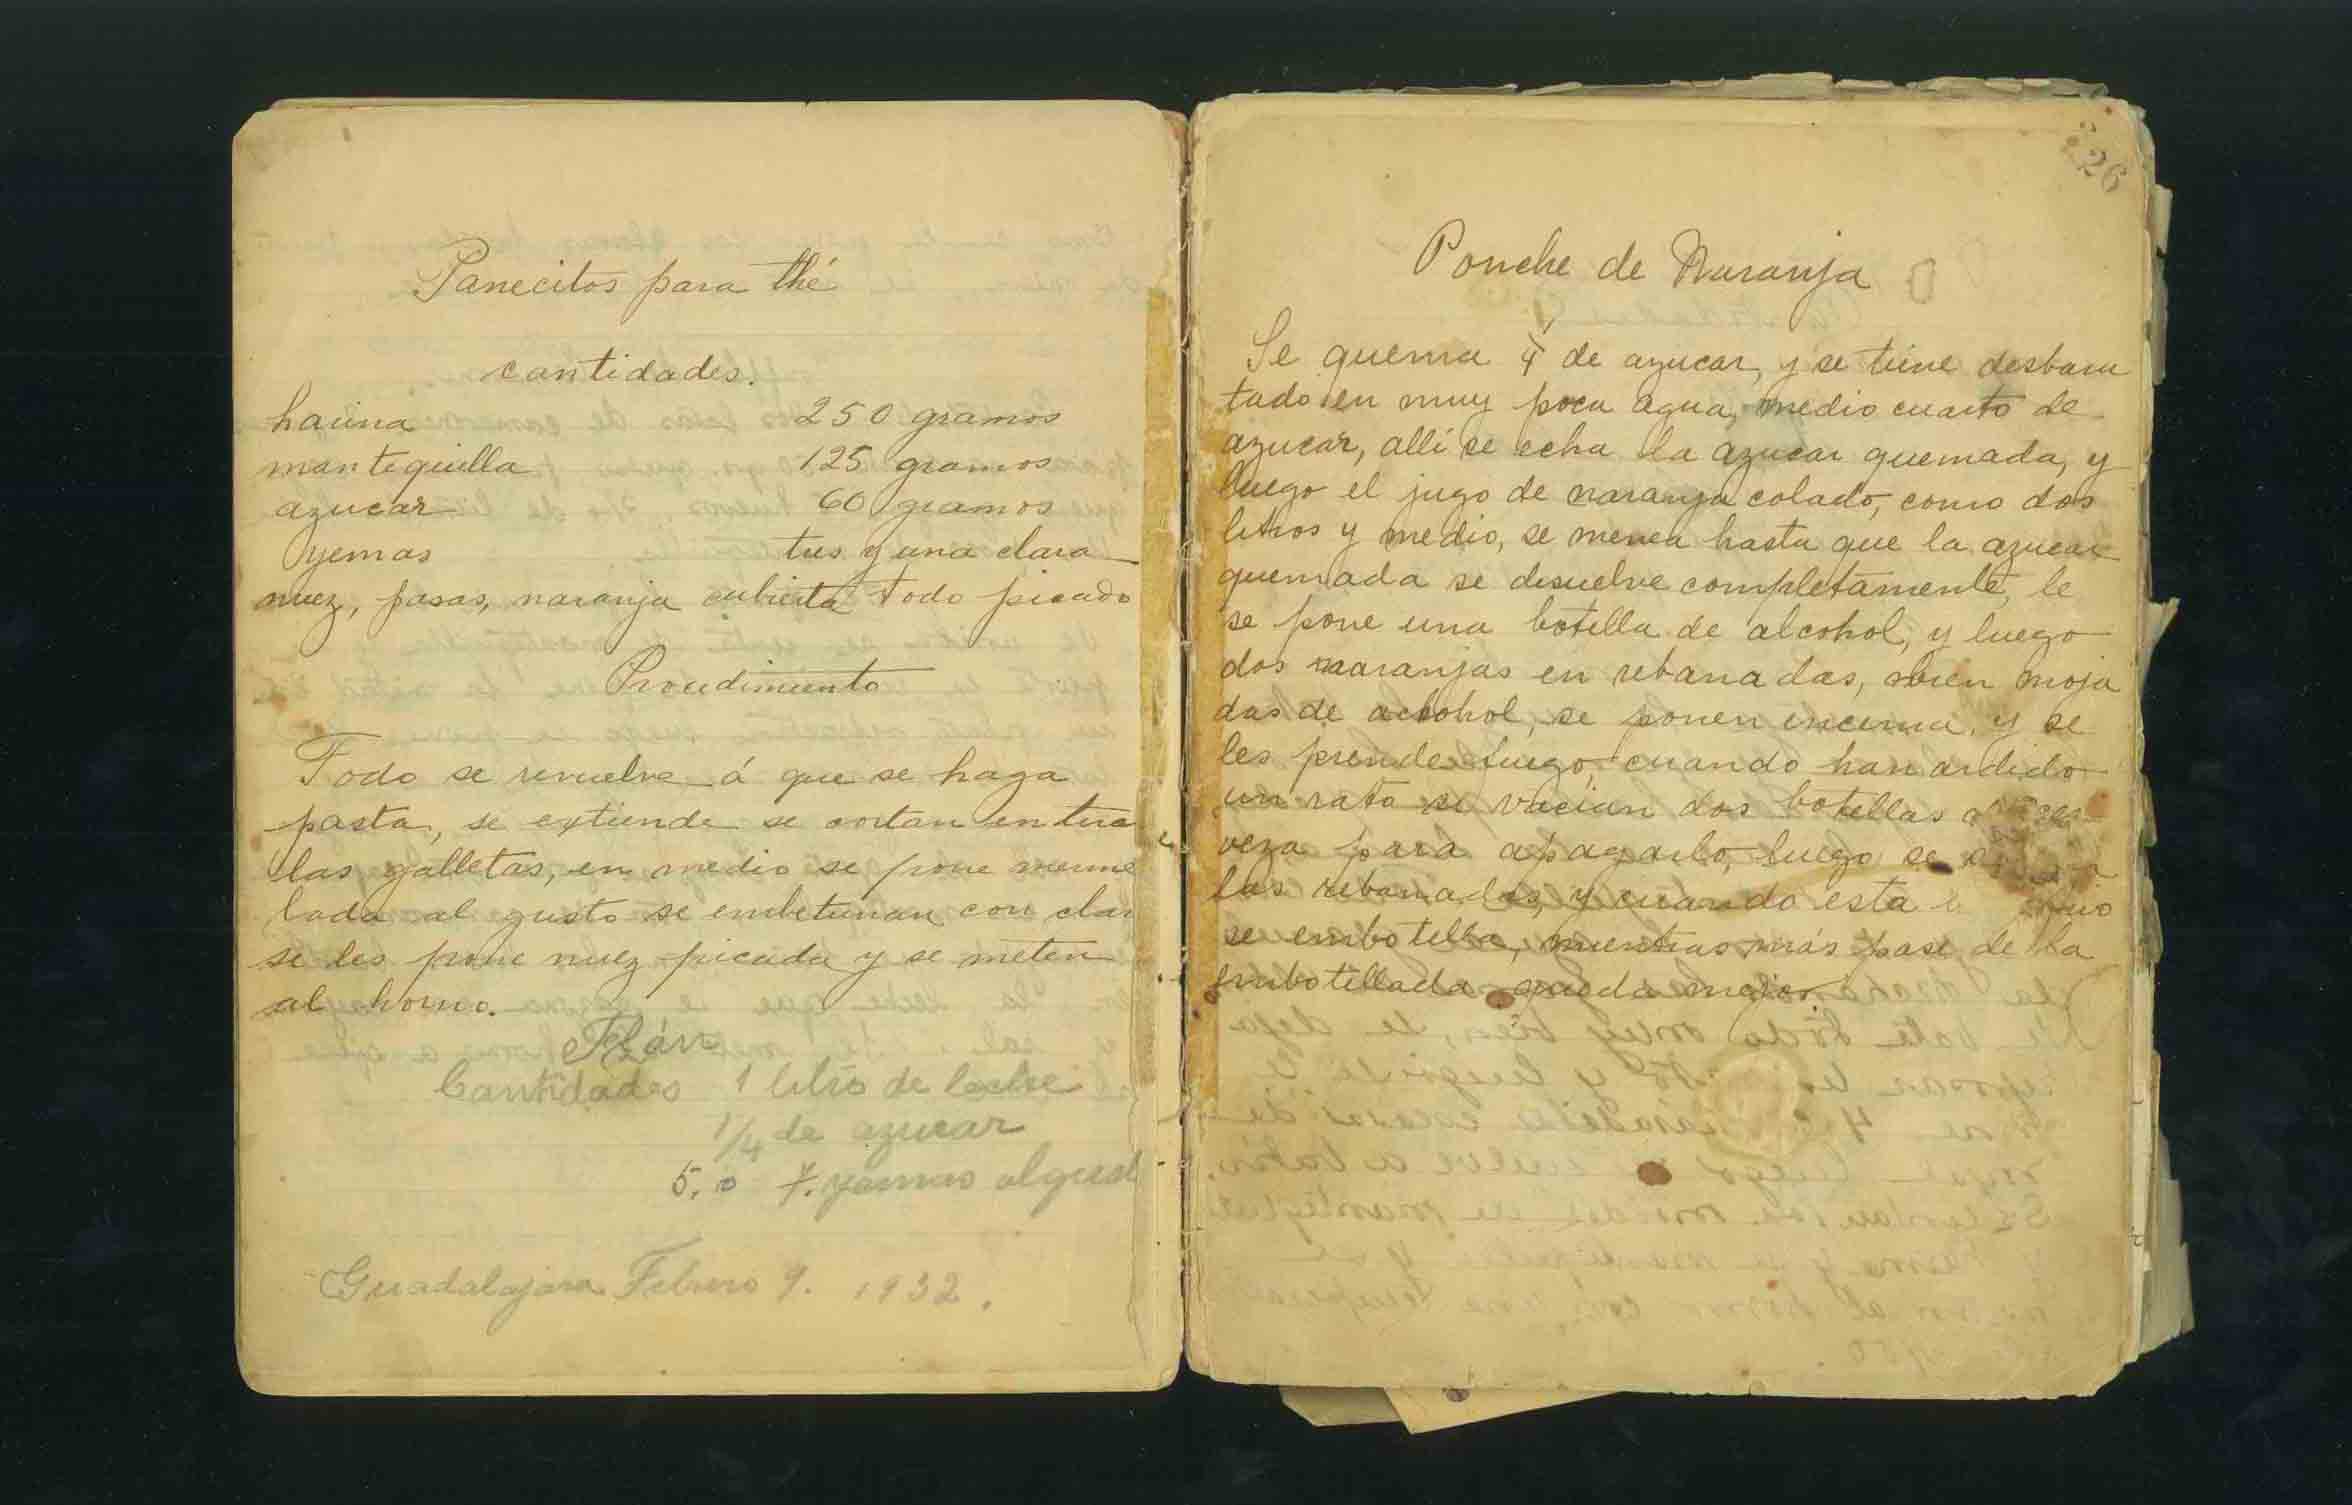 Panecitos para thé
cantidades.
harina 250 gramos
mantequilla 125 gramos
azucar 60 gramos
yemas tres y una clara
nuez, pasas, naranja cubierta todo picado
Procedimiento
Todo se revuelve á que se haga
pasta, se extiende se cortan en
las galletas, en medio se pone merme
lada al gusto se embetunan con
se les pone nuez picada y se meten
al horno.
Flán
Cantidades 1 litro de leche
1/4 de azucar
5. o 7. yemas
Guadalajara Febrero 9. 1932.
26
Ponche de Naranja
Se quema de azucar, y se tiene desbara
tado en muy poca agua, medio cuarto de
azucar, allí se echa la azucar quemada, y
luego el jugo de naranja colado, como dos
litros y medio, se menea hasta que la azucar
quemada se disuelve completamente, le
se pone una botella de alcohol, y luego
dos naranjas en rebanadas, bien moja
das de alcohol, se ponen encima, y se
les prende fuego, cuando han ardido
un rato se vacian dos botellas cer
veza para apagarlo, luego se
las rebanadas, y cuando esta
se embotella, mientras más pase de la
embotellada queda mejor.